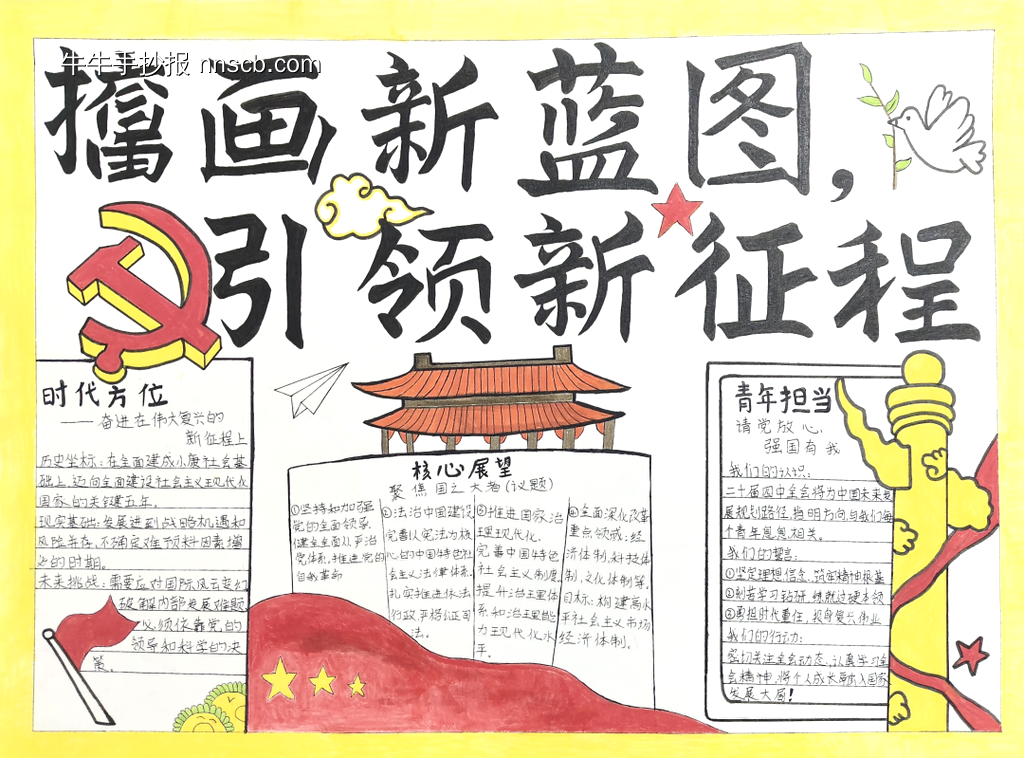 牛牛手抄报 nnscb.com
擋画新蓝图,
引领新征程
时代方位
——奋进在伟大复兴的
新征程上
历史坐标:在全面建成小康社会基
础上,迈向全面建设社会主义现代化
国家的关键五年。
现实基础:发展进到战略机遇和
风险并存,不确定难预料因素增
多的时期。
未来挑战:需要应对国际风云变幻
破解内部发展难题,
必须依靠党的
领导和科学的决
策。
核心展望
聚焦国之大者(议题)
①坚持和加强
党的全面领导
健全全面从严治
党体系,推进党的
自我革命
②法治中国建设
完善以宪法为核
心的中国特色社
会主义法律体系.
扎实推进依法
行政,严格公正司
法。
③推进国家治
理现代化.
完善中国特色
社会主义制度
提升治理体
系和治理能
力现代化水
平。
④全面深化改革
重点领域:经
济体制,科技体
制,文化体制等。
目标:构建高水
平社会主义市场
经济体制。
青年担当
请党放心,
强国有我
我们的认识:
二十届四中全会将为中国未来发
展规划路径,指明方向,与我们每
个青年息息相关。
我们的誓言:
①坚定理想信念,筑牢精神根基
②刻苦学习钻研,练就过硬本领
③勇担时代重任,投身复兴伟业
我们的行动:
密切关注全会动态,认真学习全
会精神,将个人成长融入国家
发展大局!